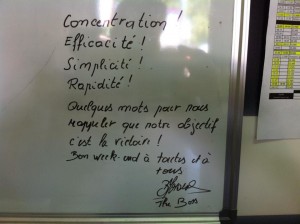 Concentration !
Efficacité !
Simplicité !
Rapidité !
Quelques mots pour nous
rappeler que notre objectif
c'est la victoire !
Bon week-end à toutes et à
tous
The Boss